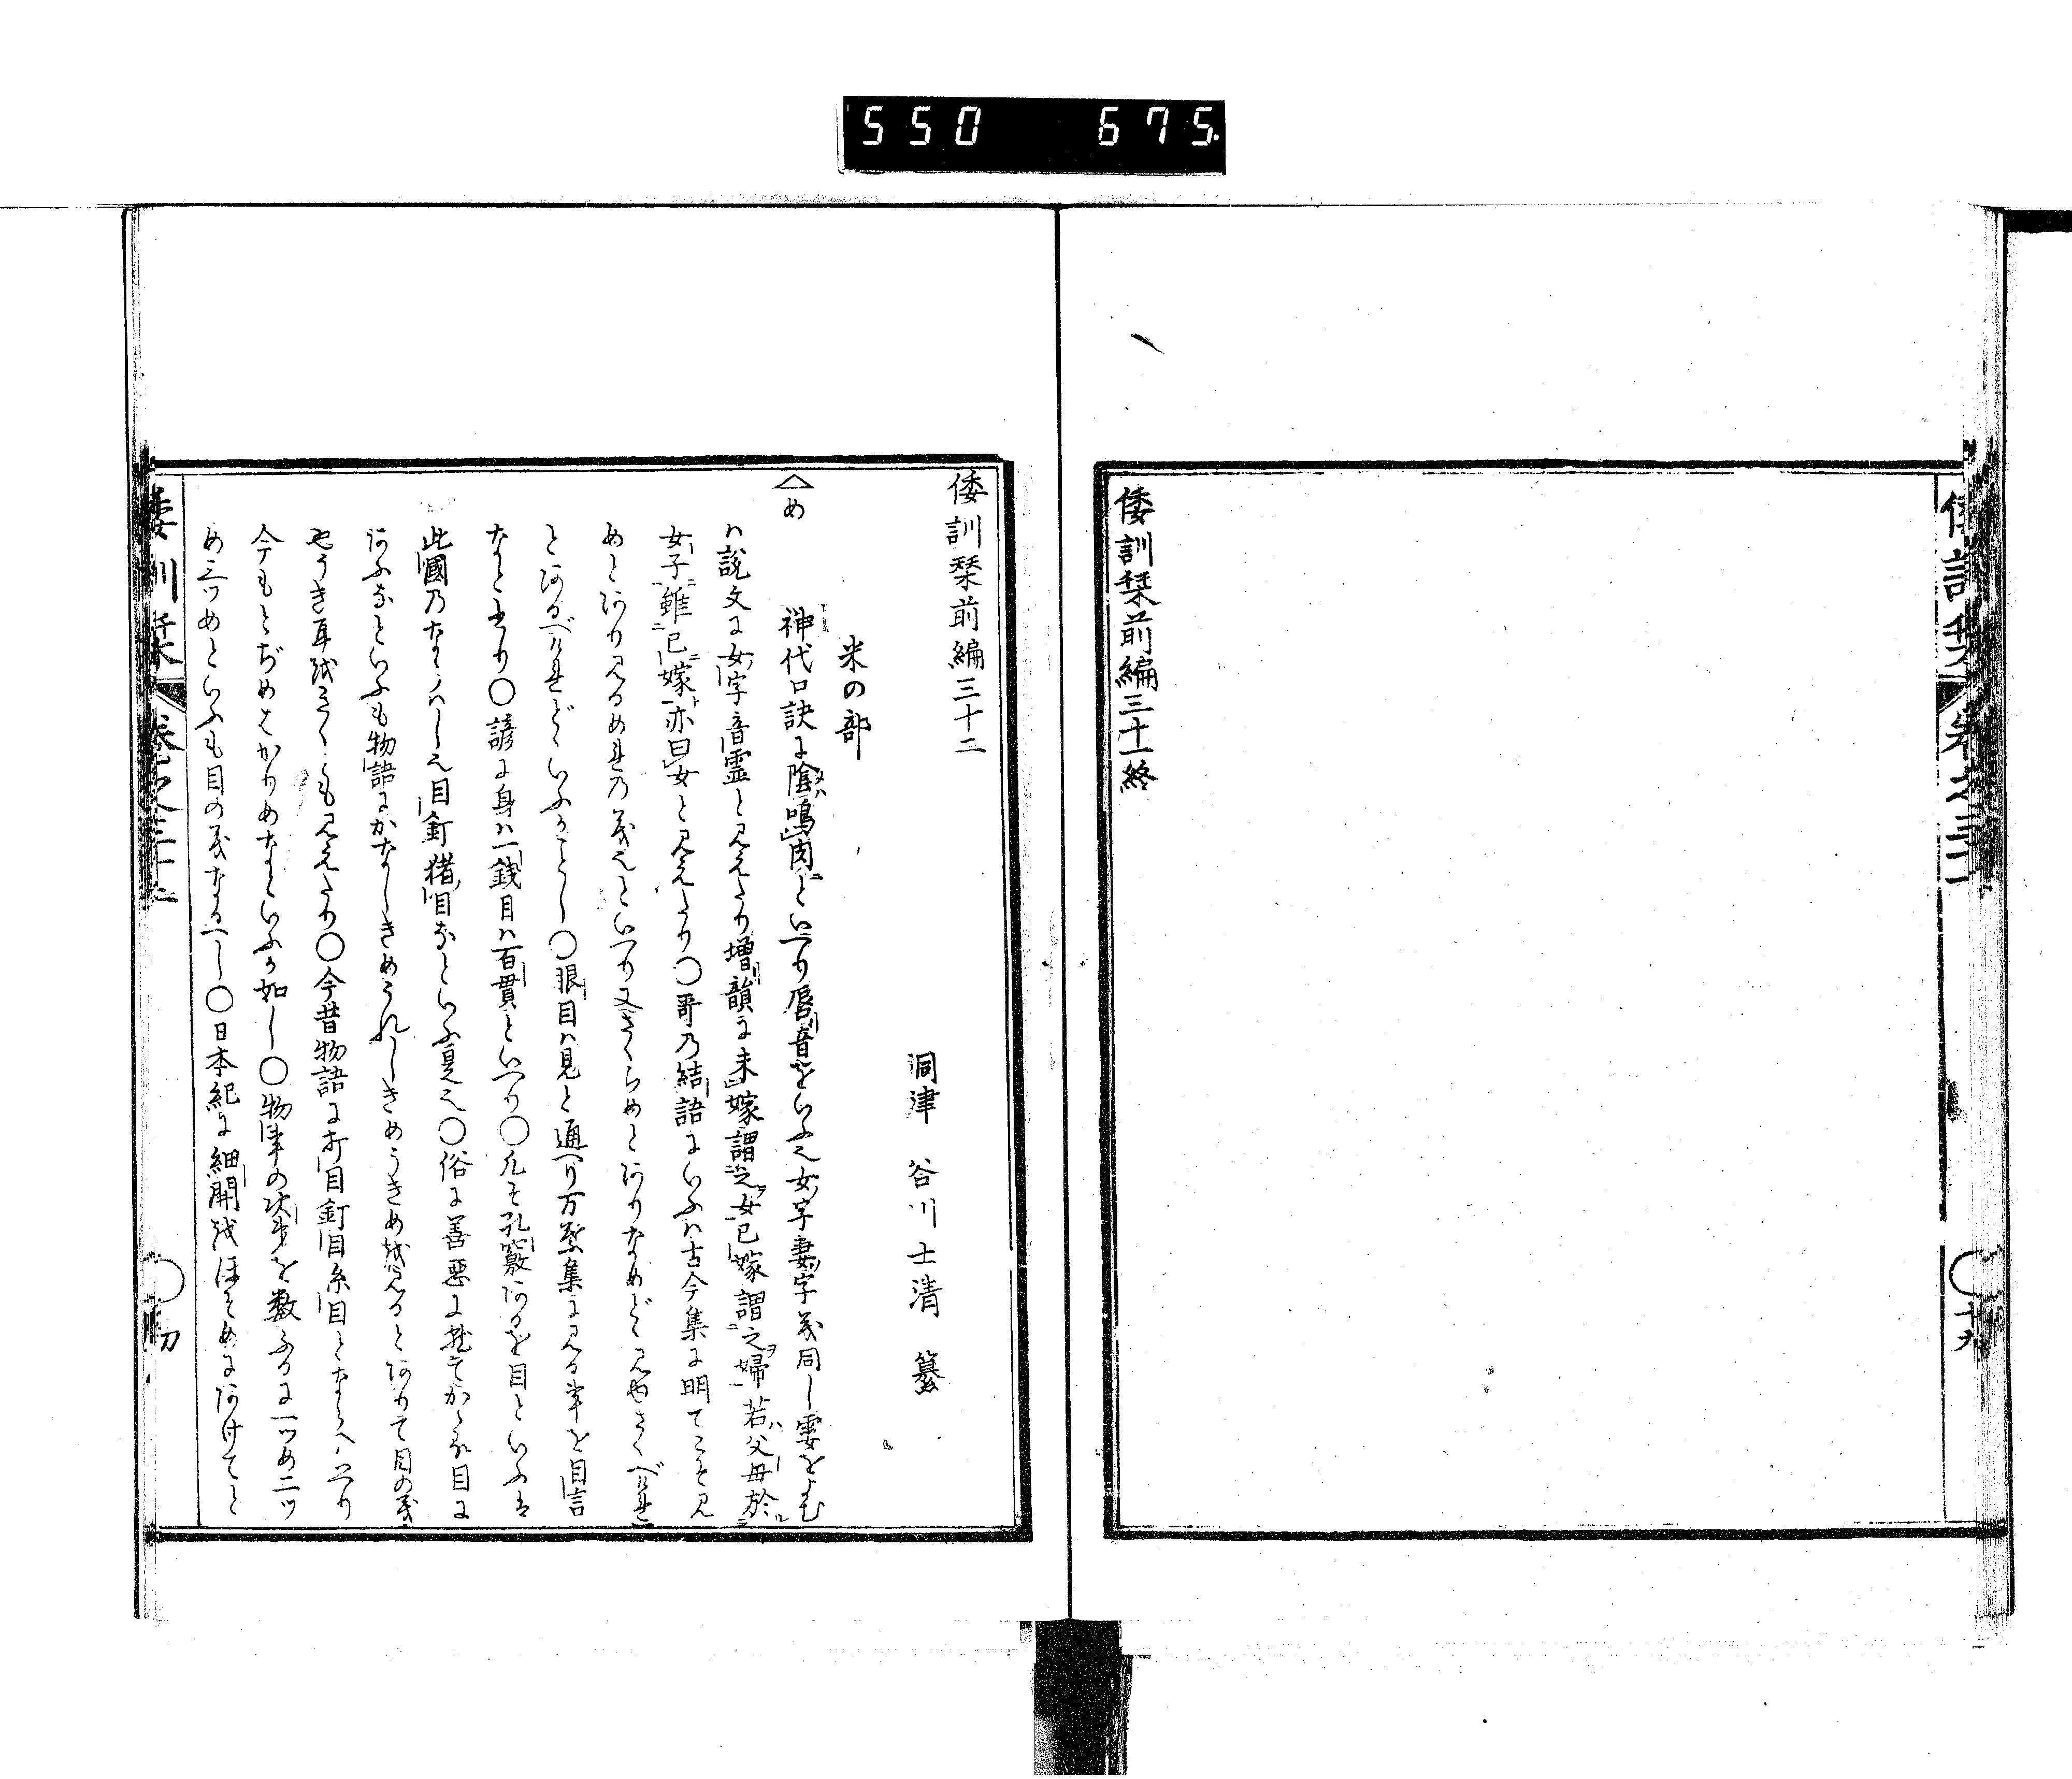 550 675
倭訓栞前編三十一終
倭訓栞前編三十二
洞津 谷川士清 纂
米の部
め
神代口訣に陰鳴肉といへり唇音をいふ也女字妻字義同し雲をよむ
ハ說文に女字音霊と見えたり增韻に未嫁謂之女已嫁謂之婦若父母於
女子雖已嫁亦曰女と見えたり○哥乃結語にいふハ古今集に明てこそ見
めとあり見るめれ乃義也といへり又さくらめとありなめどハ見
とあるべけれどといふことし○眼目ハ見と通へり万葉集に見る事を目言
なとせり○諺に身ハ一錢目ハ百貫といへり○凡そ孔竅あるを目といふは
此國乃なハし也目釘猪目なといふ是也○俗に善惡に就てかゝる目に
あふなといふも物語にかなしきめうれしきめうきめ越見るとありて目の義
やうき耳越きくとも見えたり○今昔物語に市目釘目糸目とならへいへり
今もとぢめはかりめなといふか如し○物事の次第を数ふるに一ツめ二ツ
め三ツめといふも目の義なるへし○日本紀に細開越ほそめにあけてと